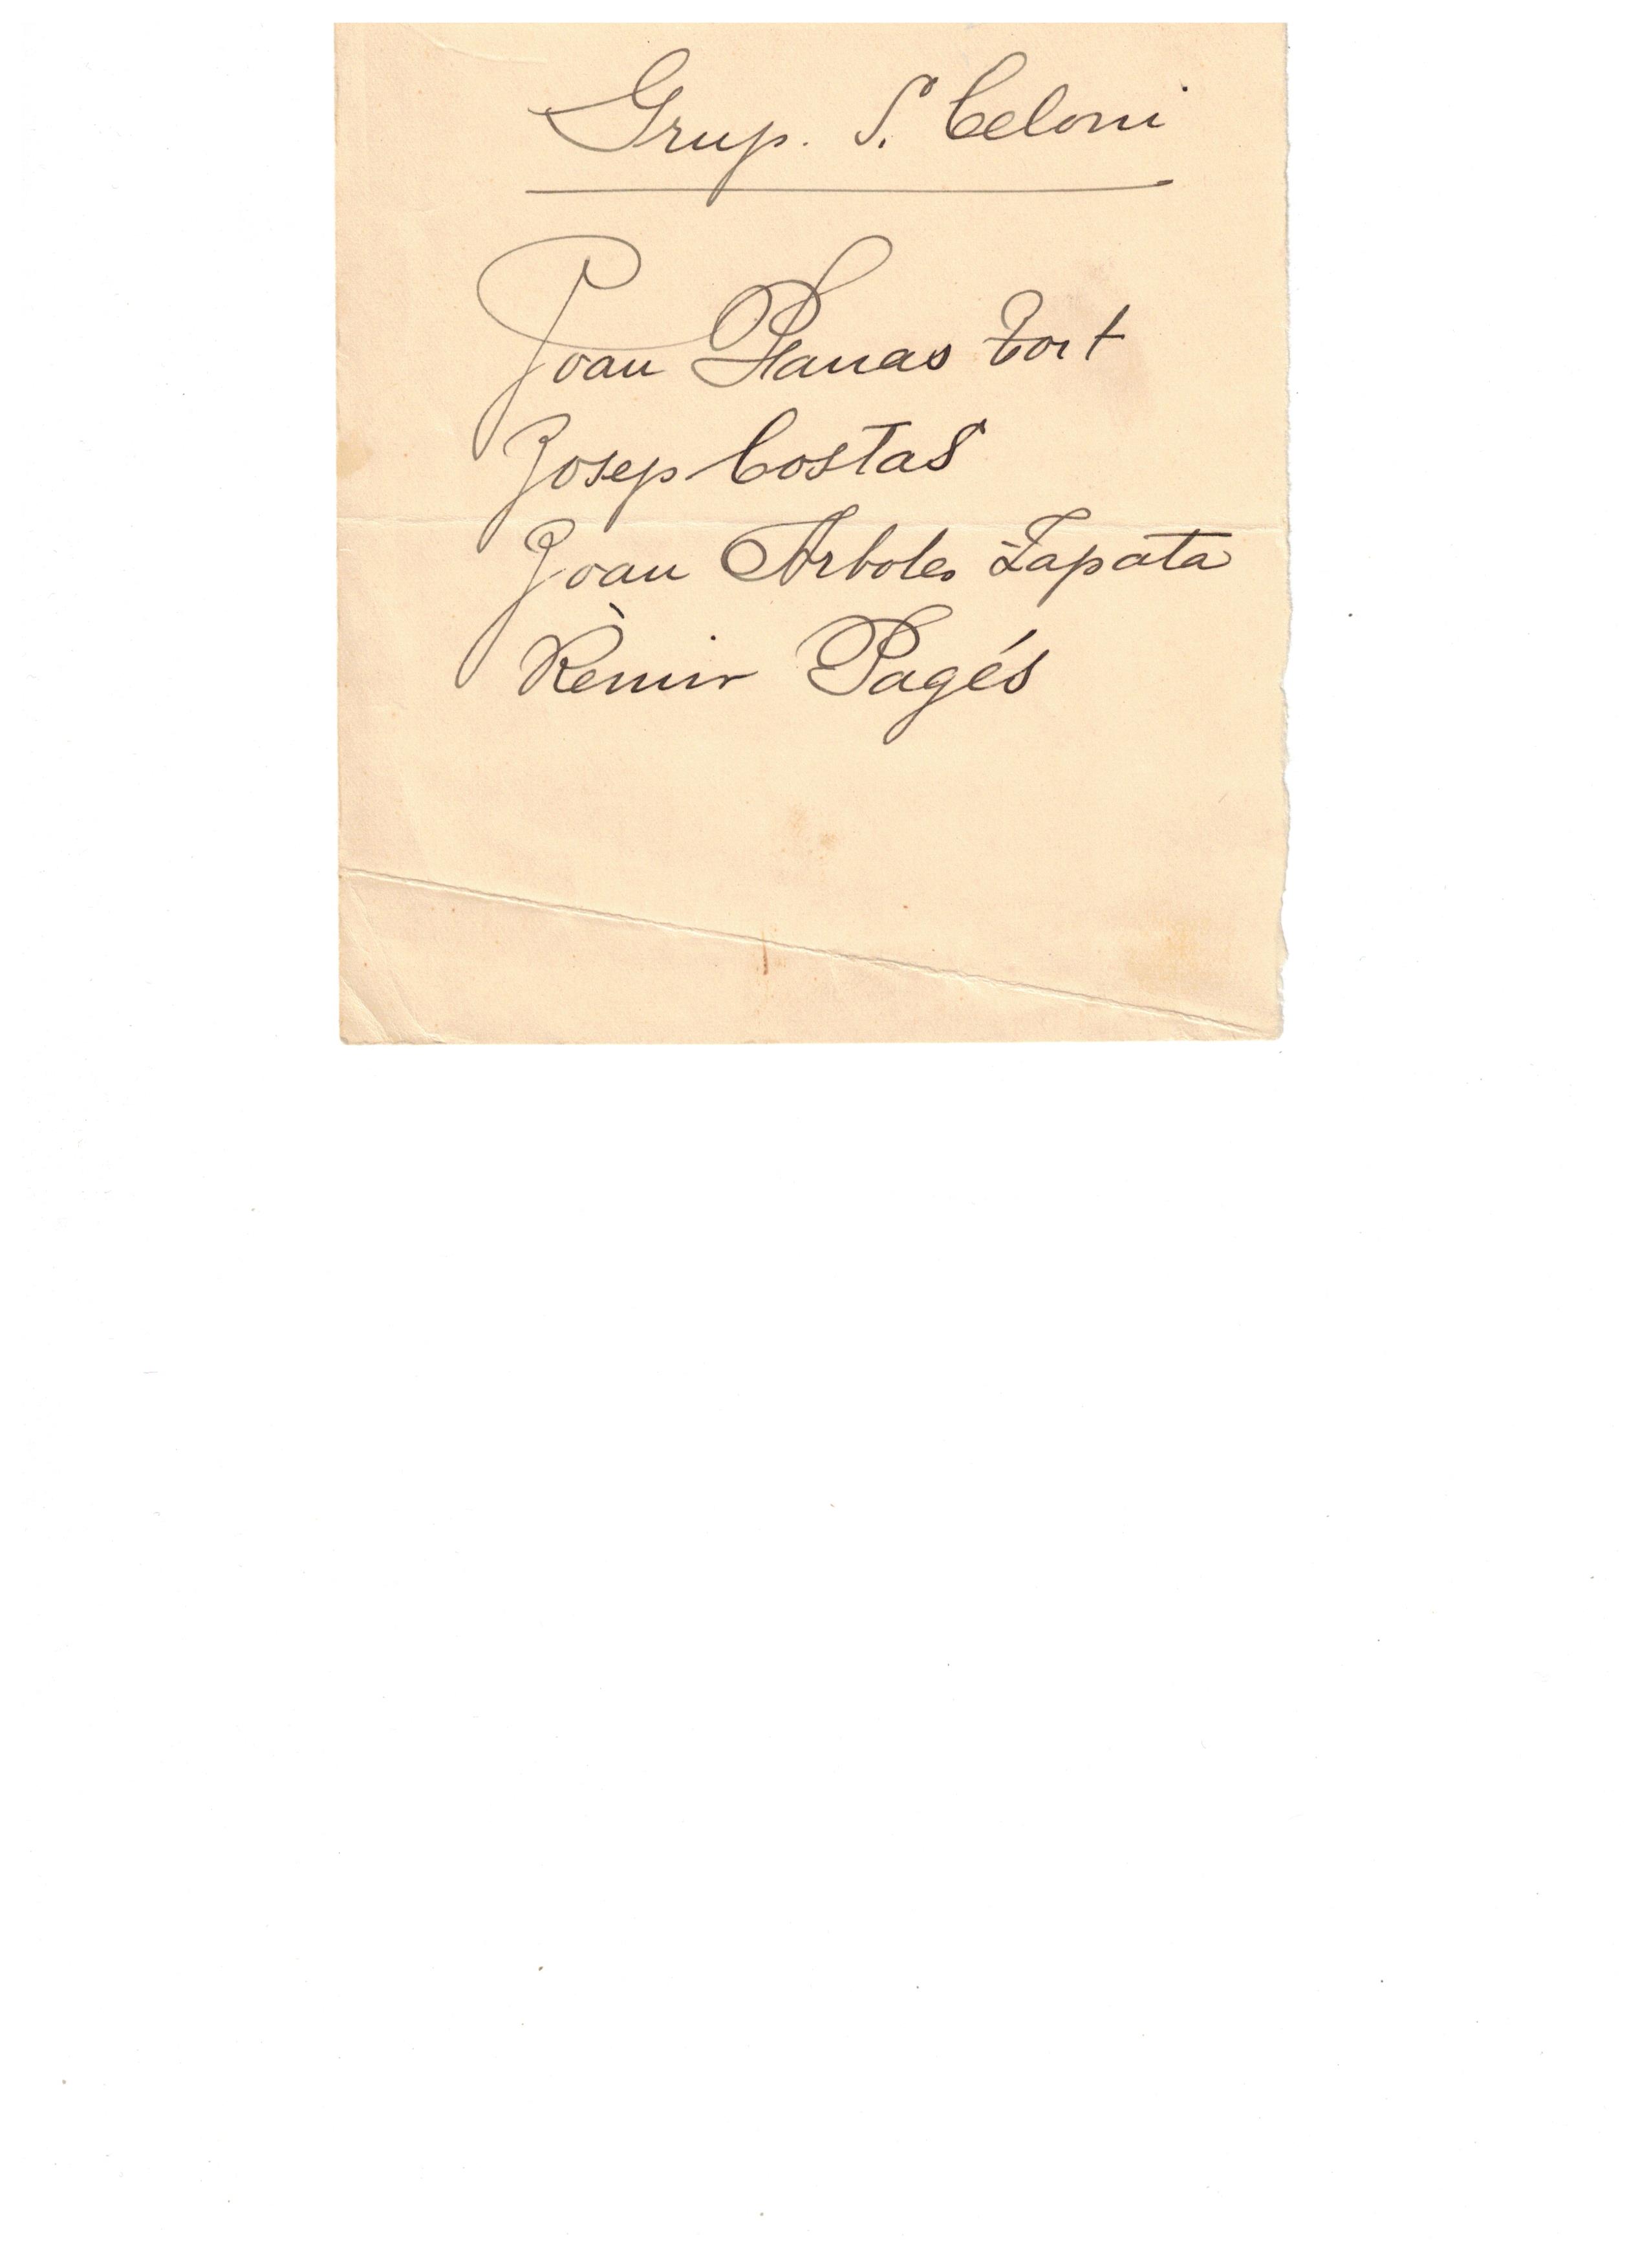 Grup. S. Celoni
Joan Planas Tort
Josep Costas
Joan Arboles Zapata
Rèmir Pagés